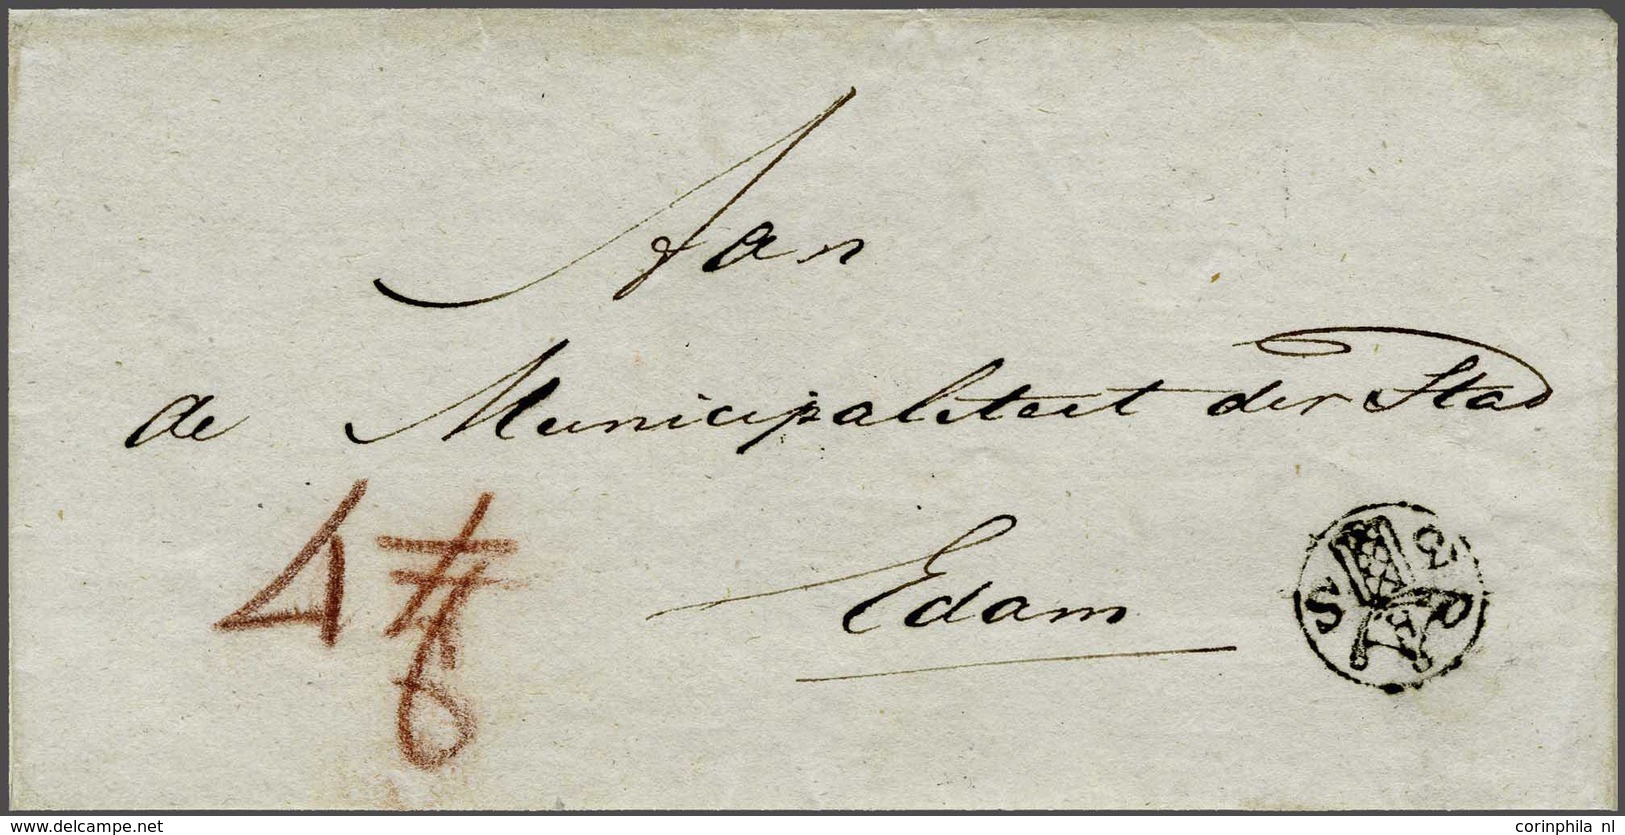 Aan
de Municipaliteit der Stad
Edam
S P
3
6
delcampe.net
corinphila nl